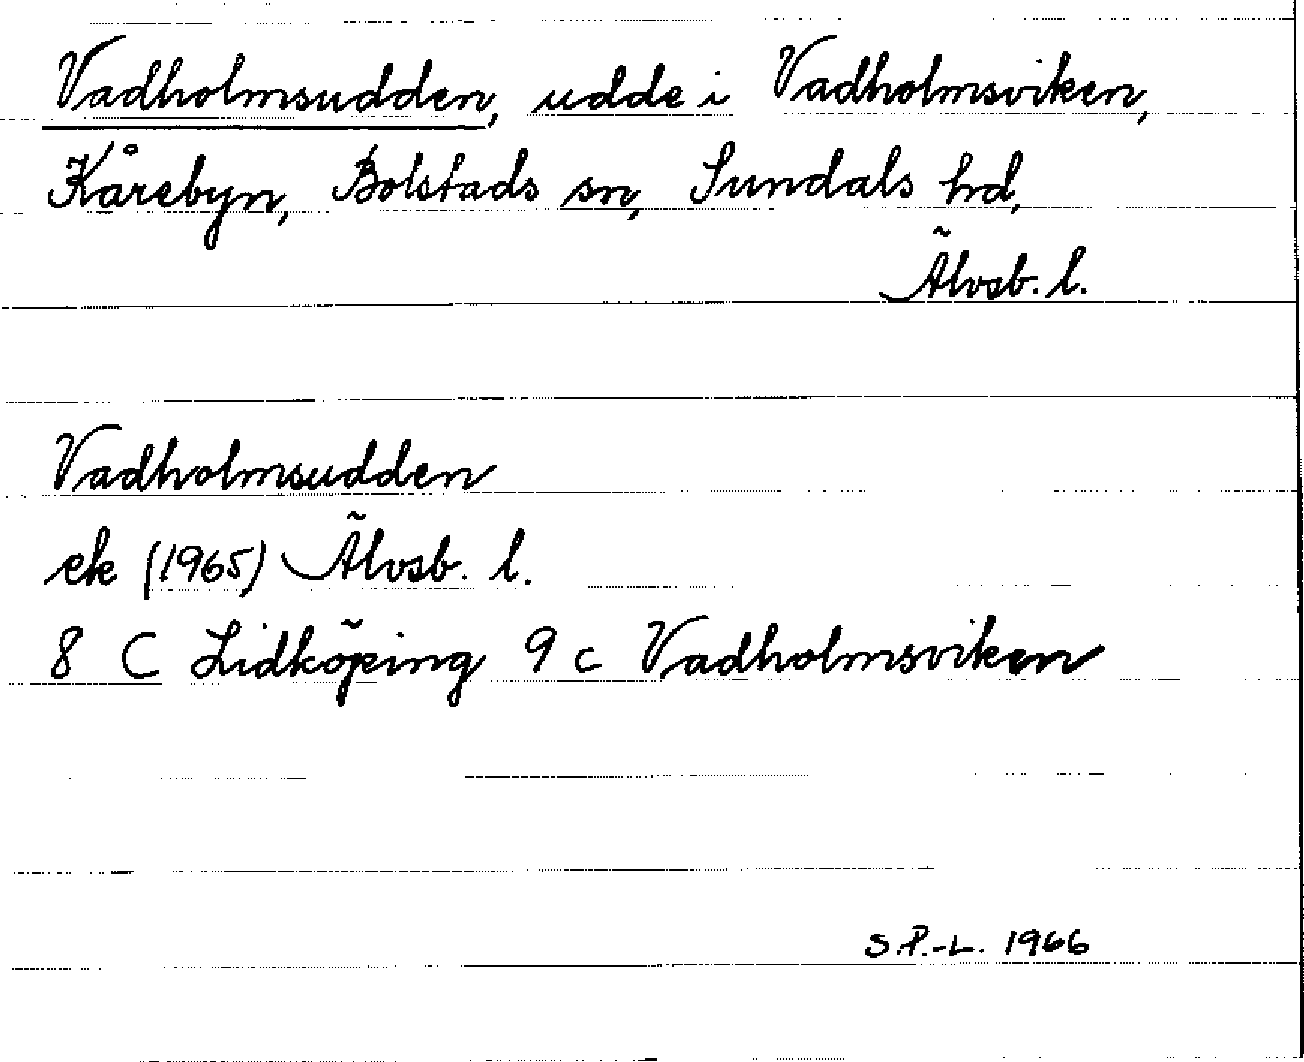 Vadholmsudden, udde i Vadholmsviken,
Kårebyn, Bolstads sn, Sundals hd,
Älvsb. l.
Vadholmsudden
ek (1965) Älvsb. l.
8 C Lidköping 9 c Vadholmsviken
S.P.-L. 1966